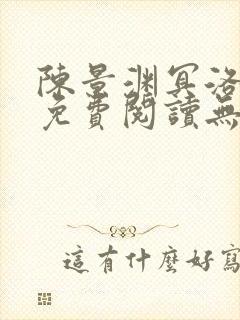 陳景淵冥洛
免費閱讀無
這有什麼好寫